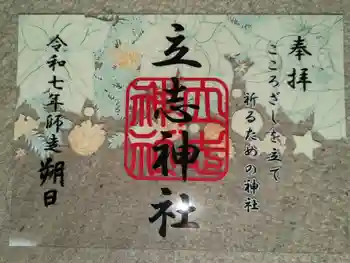 奉拝
こころざしを立て
祈るための神社
立志神社
立志神社
令和七年師走朔日